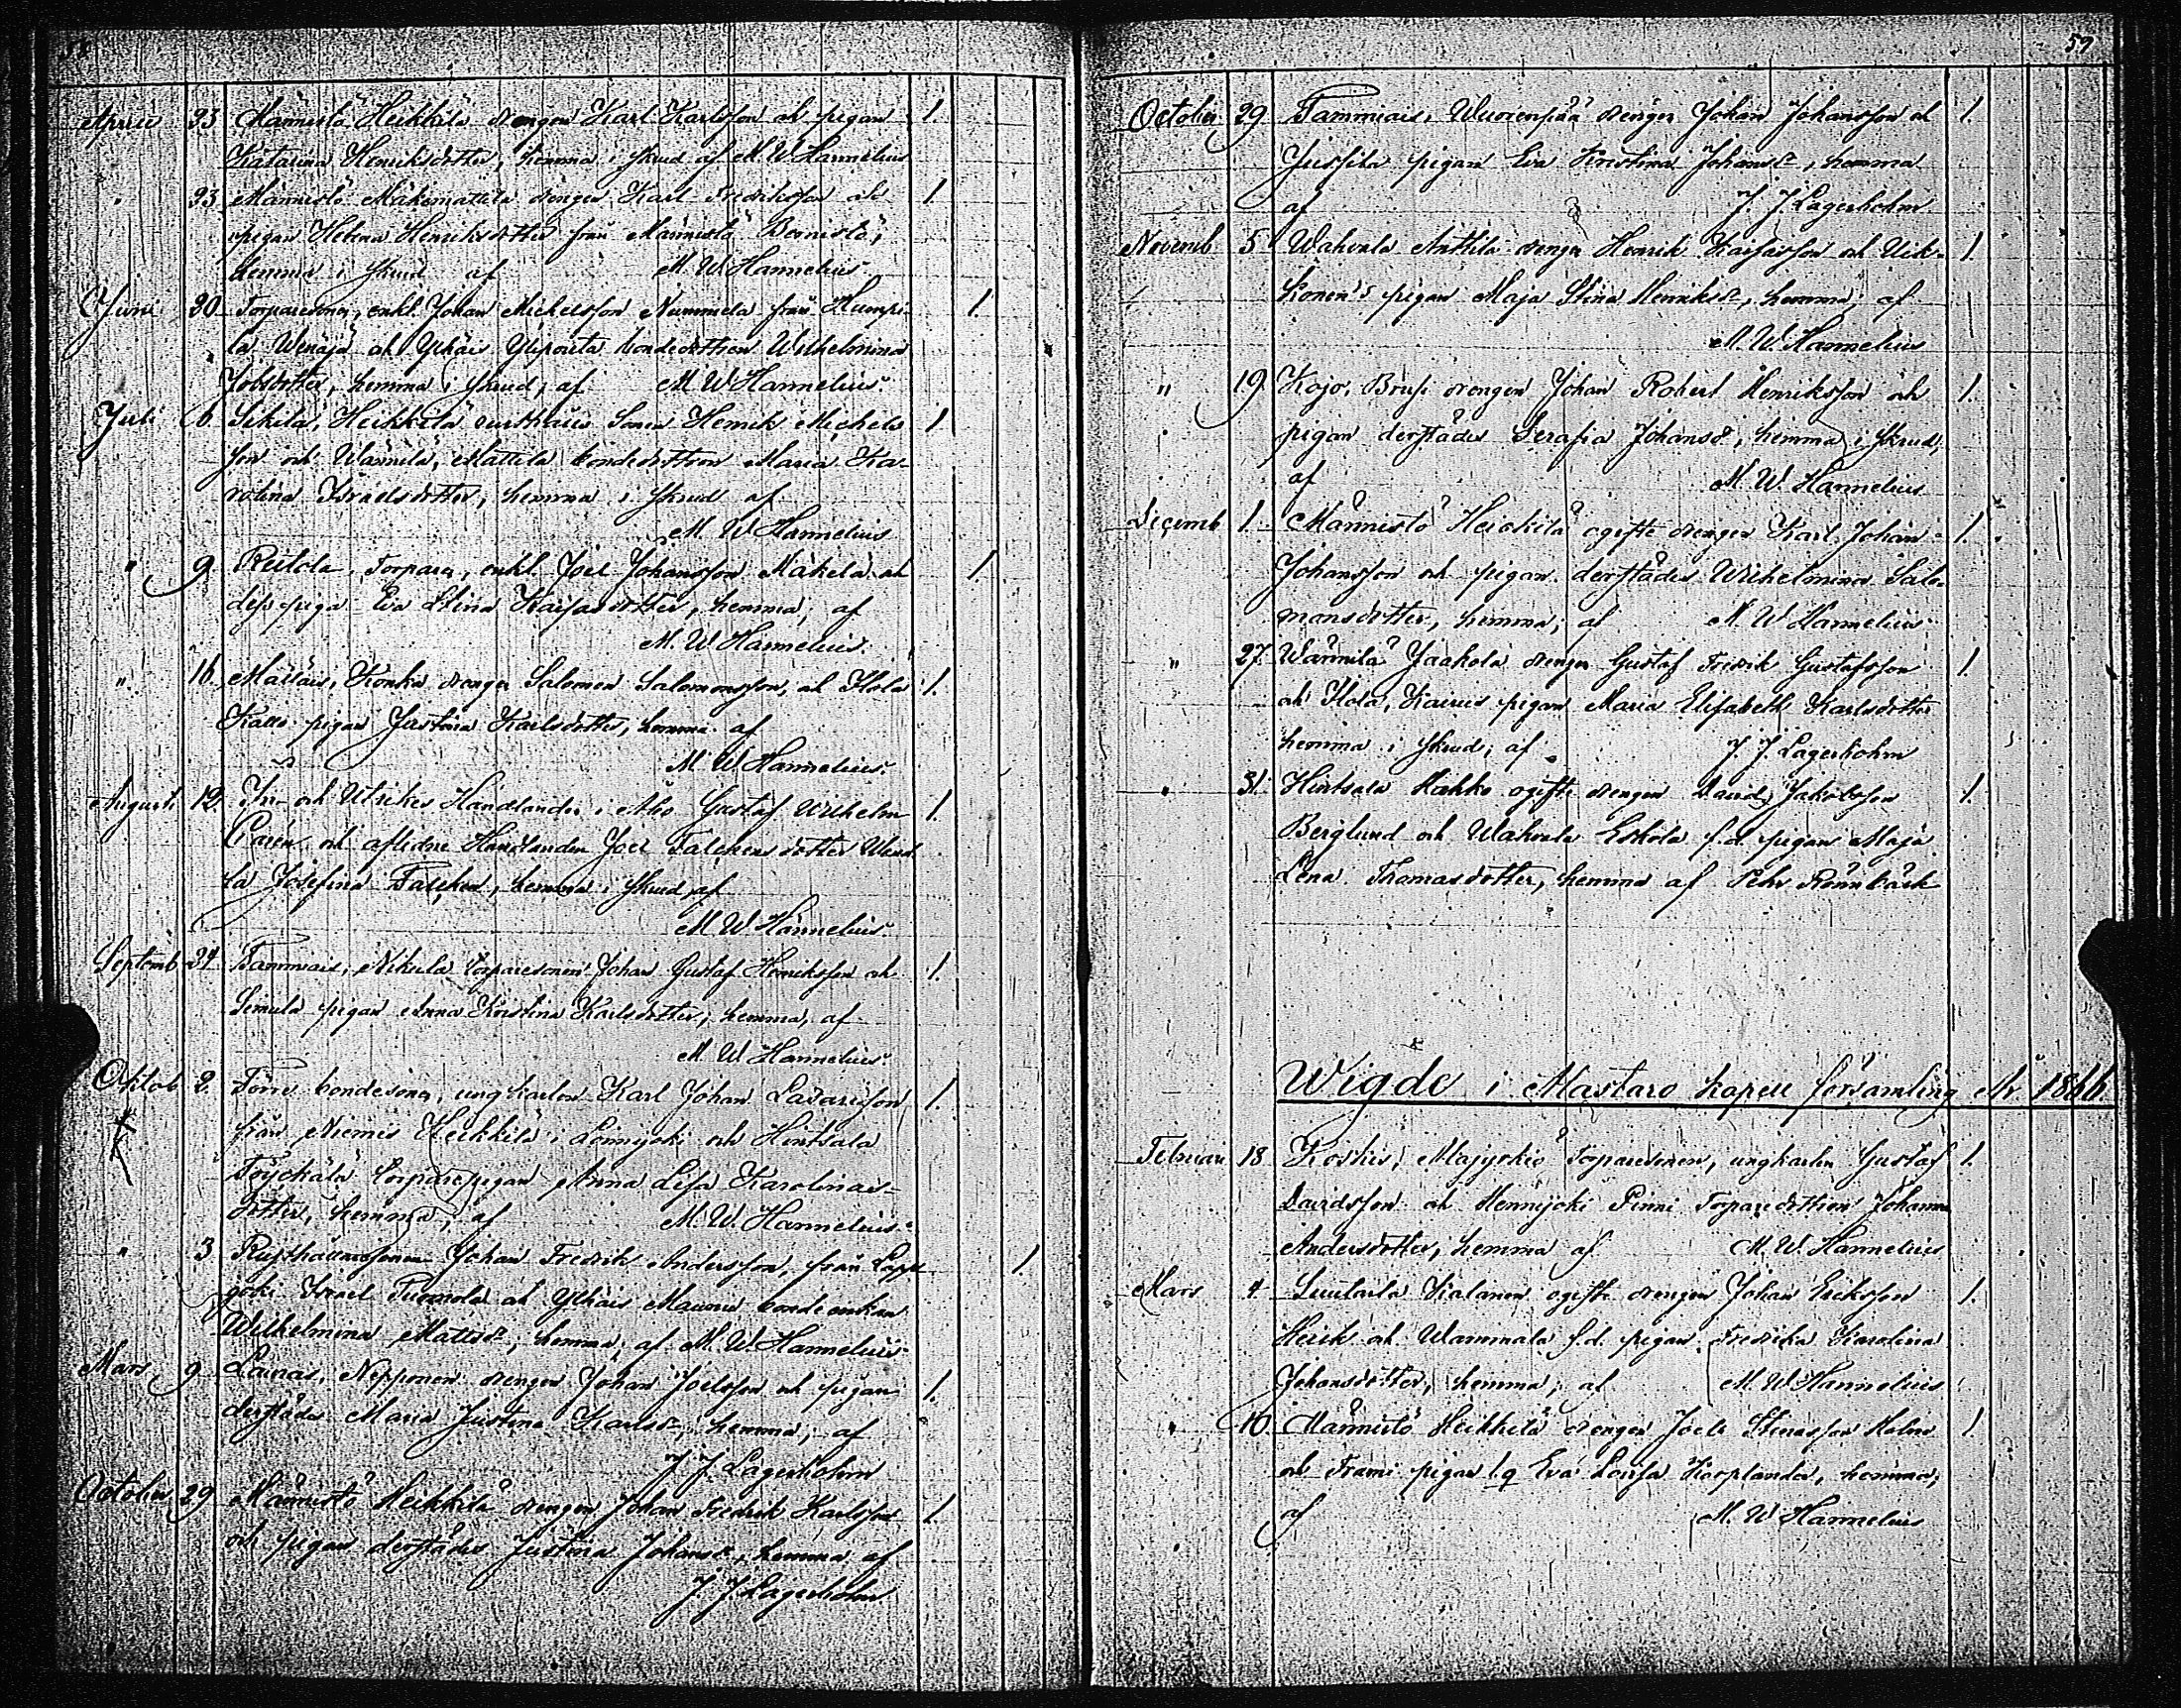 58
April 23 Männistö Heikkilä drengen Karl Karlsson och pigan 1.
Katarina Henriksdotter, hemma i skrud af M. W. Hannelius
" 23 Männistö Mäkimattila drengen Karl Fredriksson och 1
pigan Helena Henriksdotter från Männistö
hemma i skrud af M. W. Hannelius
Juni 30 Torparesonen, enkl. Johan Michelsson Nummela från Humpi- 1.
la Wenäjä och Ylhäis Ylipouta bondedottren Wilhelmina
Jobsdotter, hemma i skrud, af M. W. Hannelius
Juli 6. Sikilä, Heikkilä rusthålls sonen Henrik Michels- 1
son och Wännilä, Mattila bondedottren Maria Ka-
rolina Israelsdotter, hemma i skrud af
M. W. Hannelius
" 9 Reitola, Torparen, enkl. Joel Johansson Mäkelä och 1.
dess piga Eva Stina Kaisasdotter, hemma, af
M. W. Hannelius.
" 16. Mälläis, Konka drengen Salomon Salomonsson, och Ilola 1.
Kallo pigan Justina Karlsdotter, hemma af
M. W. Hannelius.
Augusti 12. In- och Utrikes Handlanden i Åbo Gustaf Wilhelm 1.
och aflidne Handlanden Joel Falchens dotter Wend-
la Josefina Falchen, hemma i skrud af
M. W. Hannelius.
Septemb 24 Tammiais, Nikula torparesonen Johan Gustaf Henriksson och 1.
Simula pigan Anna Kristina Karlsdotter, hemma, af
M. W. Hannelius.
Oktob 2. Torre bondesonen, ungkarlen Karl Johan Lasarisson 1.
från Niemis Heikkilä i Loimijoki och Hintsala
Töyckälä torparepigan Anna Lisa Karolinas-
dotter, hemma, af M. W. Hannelius
" 3 Rusthållaresonen Johan Fredrik Andersson, från Lappi 1.
Israel Tuomola och Ylhäis Maunu bondeenkan
Wilhelmina Mattsdr, hemma, af M. W. Hannelius
Mars 9 Lauras, Nepponen drengen Johan Joelsson och pigan 1.
derstädes Maria Justina Karlsdr, hemma, af
J. J. Lagerholm
October 29 Männistö Heikkilä drengen Johan Fredrik Karlsson 1
och pigan derstädes Justina Johansdr, hemma af
J. J. Lagerholm
59
October 29 Tammiais, Wuorenpää drengen Johan Johansson och 1.
Jussila pigan Eva Kristina Johansdr, hemma
af J. J. Lagerholm
Novemb 5 Wahvala Anttila drengen Henrik Kaisasson och Uik- 1.
konen's pigan Maja Stina Henriksdr, hemma, af
M. W. Hannelius
" 19 Kojo, Brusi drengen Johan Robert Henriksson och 1.
pigan derstädes Serafia Johansdr, hemma i skrud,
af M. W. Hannelius
Decemb 1. Männistö Heikkilä ogifte drengen Karl Johan 1.
Johansson och pigan derstädes Wilhelmina Salo-
monsdotter, hemma, af M. W. Hannelius
" 27. Wännilä Jaakola drengen Gustaf Fredrik Gustafsson 1.
och Ilola, Kairis pigan Maria Elisabeth Karlsdotter
hemma i skrud, af J. J. Lagerholm
" 31. Hintsala Kahko ogifte drengen David Jakobsson 1.
Berglund och Wahvala Eskola f.d. pigan Maja
Lena Thomasdotter, hemma af Pehr Rönnbäck
Wigde i Mastaro kapell församling År 1866
Februari 18 Koskis, Majyrkiö Torparesonen, ungkarlen Gustaf 1.
Davidsson och Hennijoki Pinni Torparedottren Johanna
Andersdotter, hemma af M. W. Hannelius
Mars 4 Suutarla ogifte drengen Johan Eriksson 1.
och Wammala f.d. pigan Fredrika Karolina
Johansdotter, hemma, af M. W. Hannelius
" 10. Männistö Heikkilä drengen Joel Stenasson Holm 1
och Frami pigan Eva Lovisa Karplander, hemma,
af M. W. Hannelius